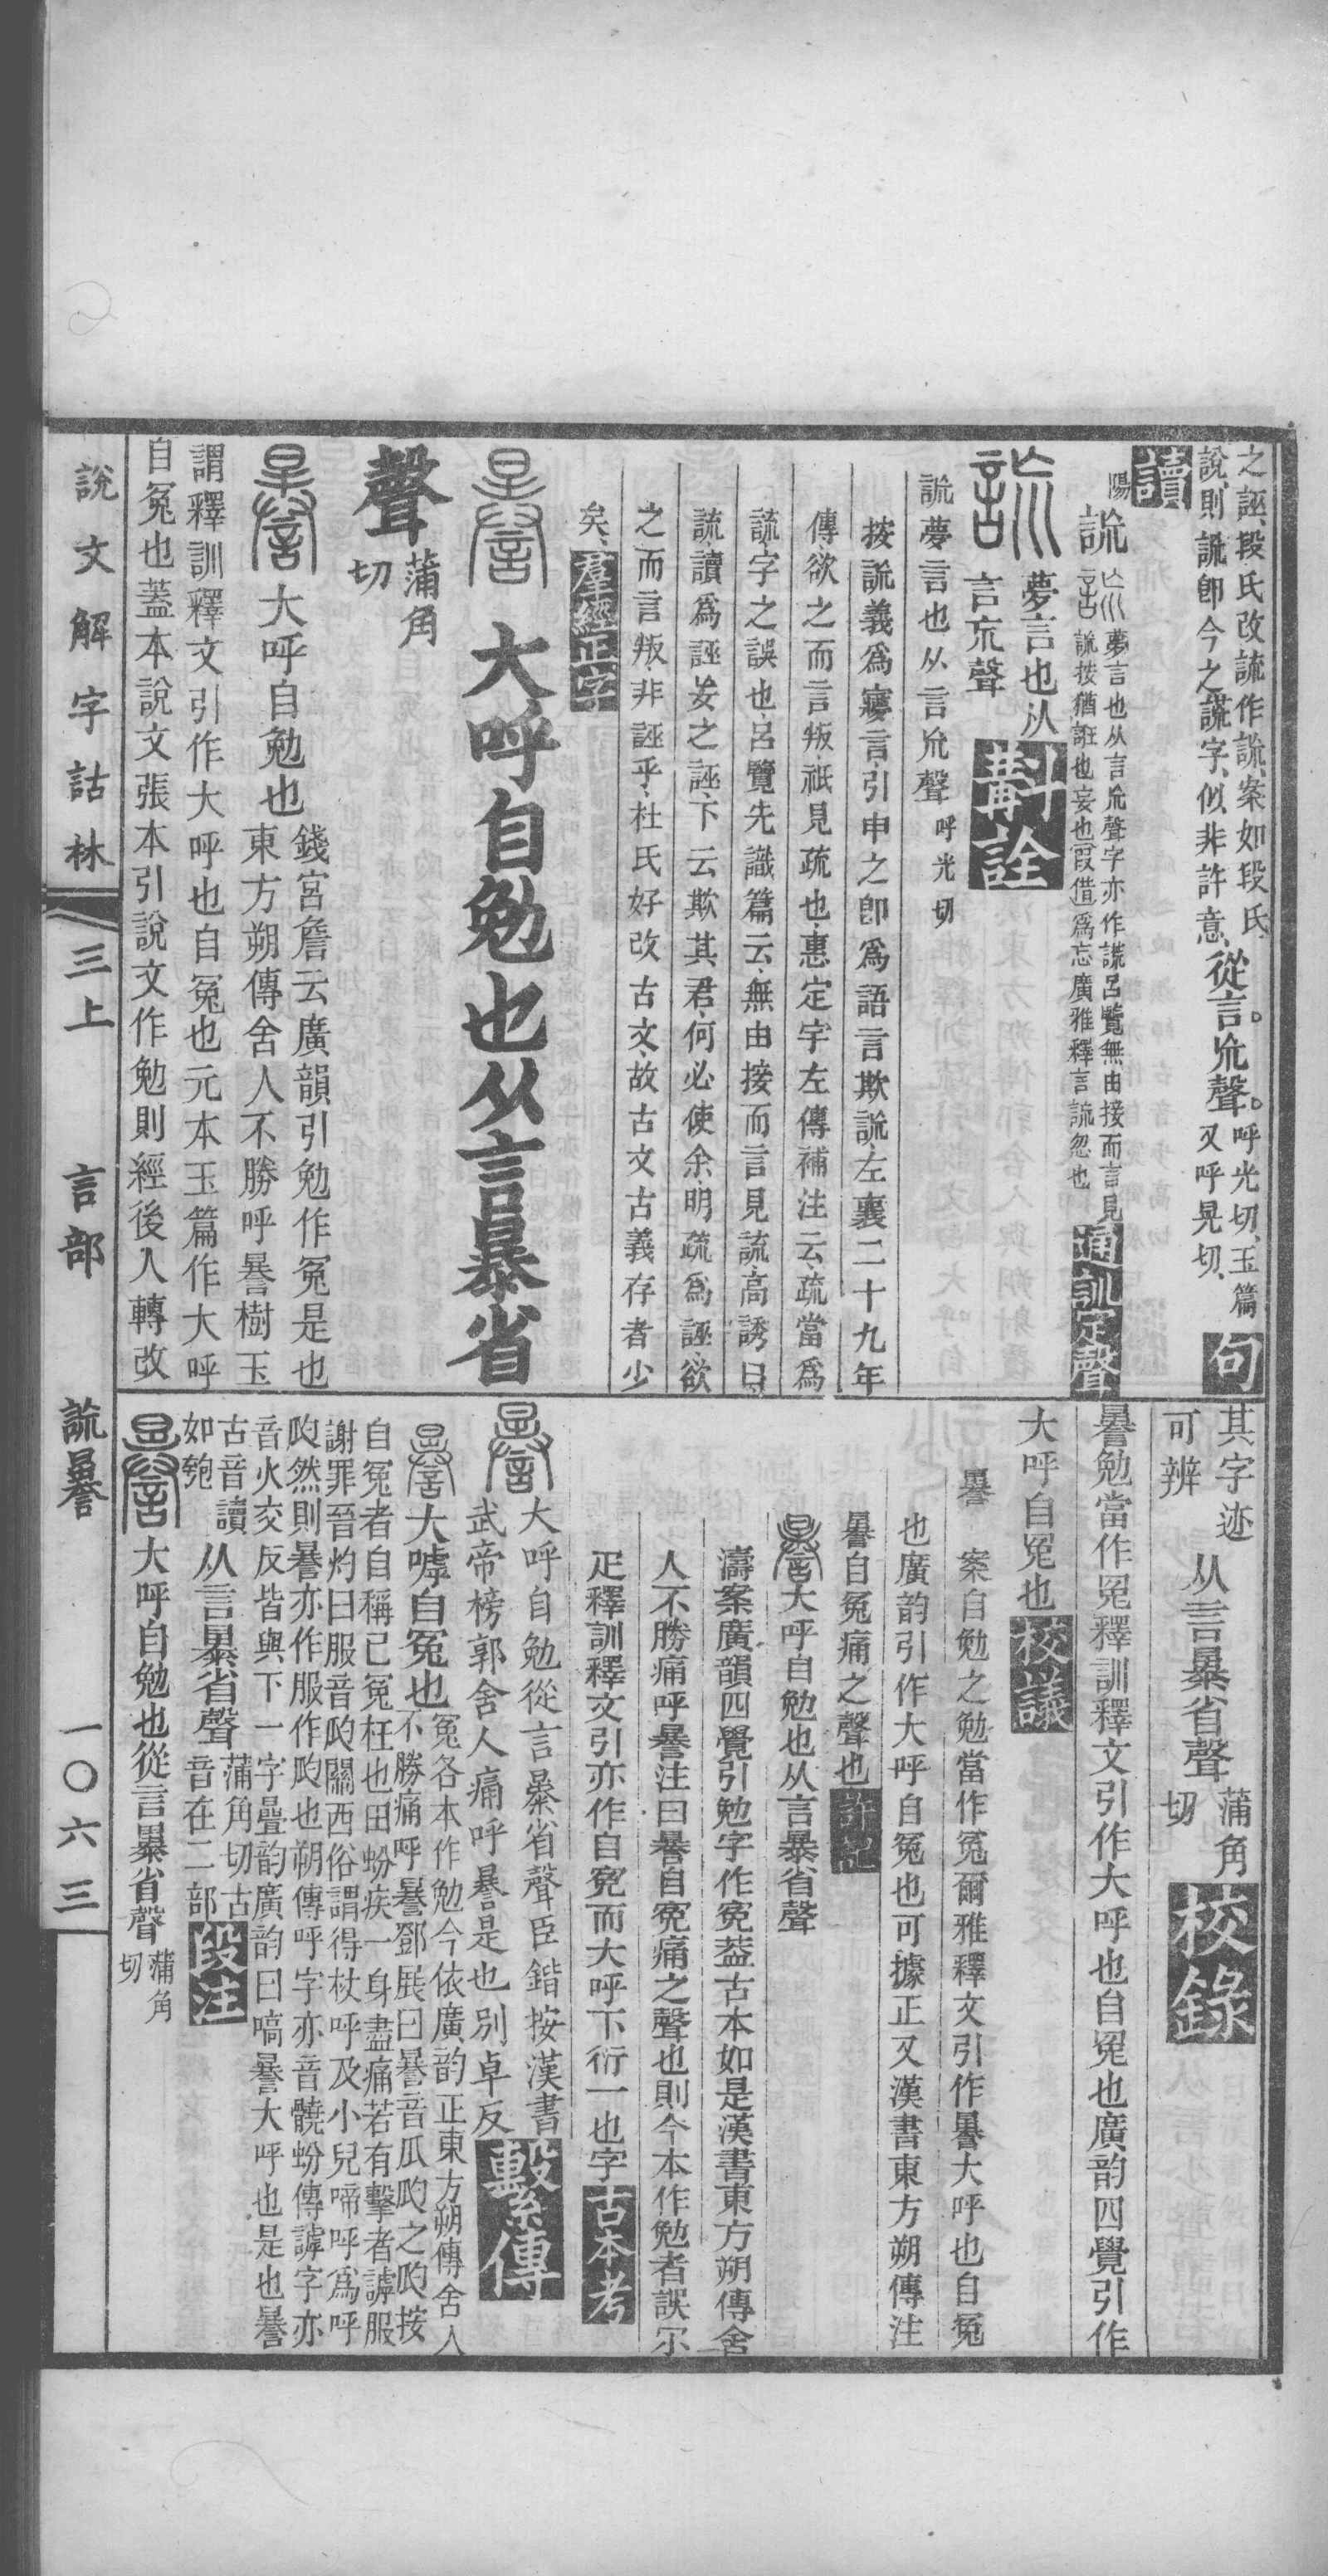 之誣、段氏改䛯作詤、案如段氏
說、則詤卽今之謊字、似非許意、從言。㠩聲。呼光切、玉篇
又呼晃切、句
讀
陽詤夢言也从言㠩聲字亦作謊呂覽無由接而言見
詤按猶誑也妄也叚借爲忘廣雅釋言詤忽也通訓定聲
夢言也从
言㠩聲斠詮
詤夢言也从言㠩聲呼光切
按詤義爲㝱言、引申之卽爲語言欺詤、左襄二十九年
傳、欲之而言叛、祇見疏也、惠定宇左傳補注云、疏當爲
詤、字之誤也、呂覽先識篇云、無由接而言見詤、高誘曰、
詤、讀爲誣妄之誣、下云欺其君、何必使余、明疏爲誣、欲
之而言叛、非誣乎、杜氏好改古文、故古文古義存者少
矣、羣經正字
大呼自勉也从言暴省
聲蒲角
切
大呼自勉也錢宮詹云廣韻引勉作冤是也
東方朔傳舍人不勝呼謈樹玉
謂釋訓釋文引作大呼也自冤也元本玉篇作大呼
自冤也蓋本說文張本引說文作勉則經後人轉改
其字迹
可辨从言暴省聲蒲角
切校錄
謈勉當作冤釋訓釋文引作大呼也自冤也廣韵四覺引作
大呼自冤也校議
謈案自勉之勉當作冤爾雅釋文引作謈大呼也自冤
也廣韵引作大呼自冤也可據正又漢書東方朔傳注
謈自冤痛之聲也許記
大呼自勉也从言暴省聲
濤案廣韻四覺引勉字作冤葢古本如是漢書東方朔傳舍
人不勝痛呼謈注曰謈自冤痛之聲也則今本作勉者誤尒
疋釋訓釋文引亦作自冤而大呼下衍一也字古本考
大呼自勉從言暴省聲臣鍇按漢書
武帝榜郭舍人痛呼謈是也別卓反繫傳
大嘑自冤也冤各本作勉今依廣韵正東方朔傳舍人
不勝痛呼謈鄧展曰謈音瓜瓝之瓝按
自冤者自稱己冤枉也田蚡疾一身盡痛若有擊者謼服
謝罪晉灼曰服音瓝關西俗謂得杖呼及小兒啼呼爲呼
瓝然則謈亦作服作瓝也朔傳呼字亦音髐蚡傳謼字亦
音火交反皆與下一字疊韵廣韵曰嗃謈大呼也是也謈
古音讀
如匏从言暴省聲蒲角切古
音在二部段注
大呼自勉也從言暴省聲蒲角
切
說文解字詁林
三上
言部
詤謈
一〇六三